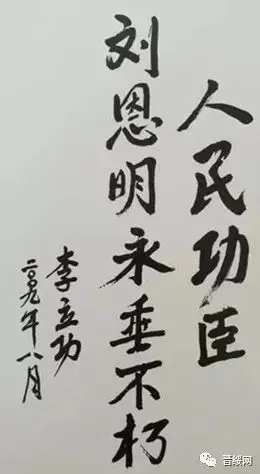 人民功臣
刘恩明永垂不朽
李立功
二〇〇九年八月
晋绥网